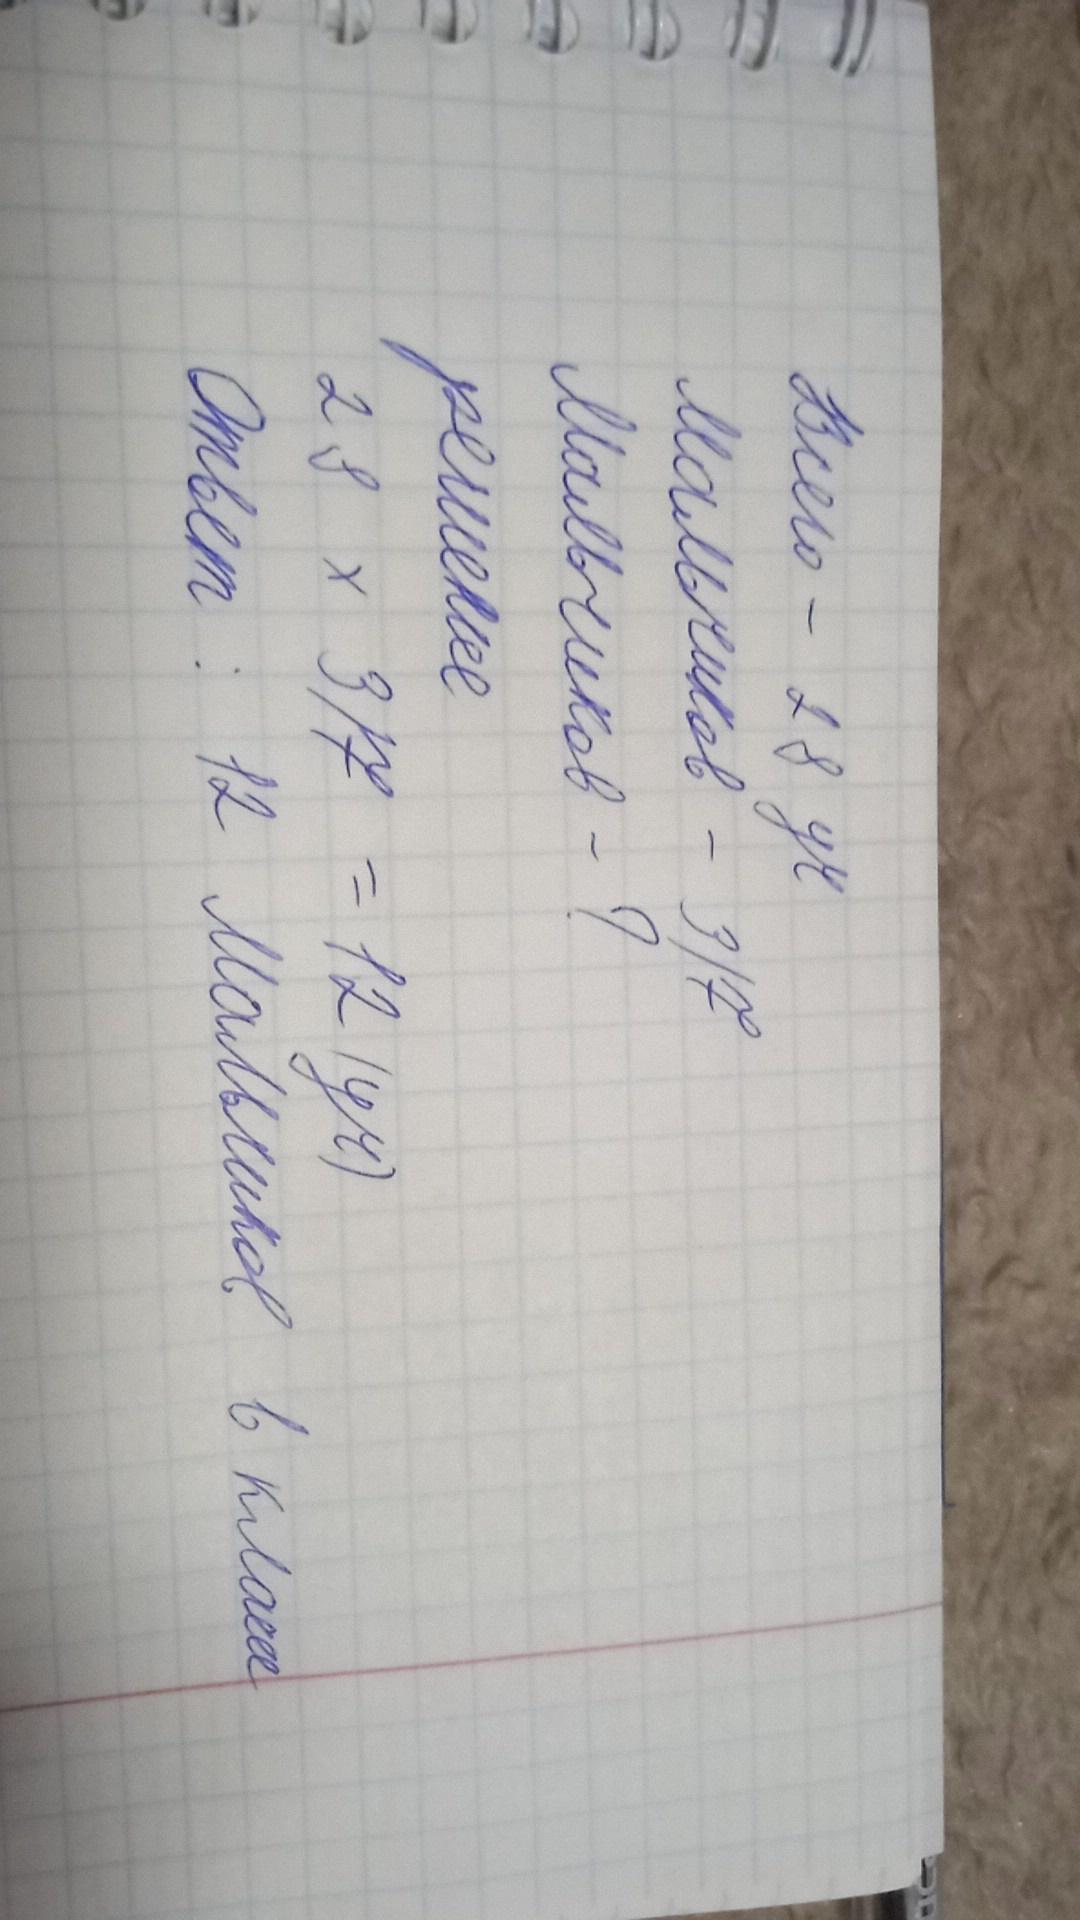 Всего - 28 уч
Мальчиков - 3/7
Мальчиков - ?
решение
28 × 3/7 = 12 (уч)
Ответ: 12 мальчиков в классе